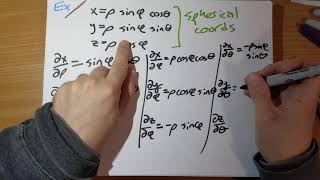 Ex
x=ρ sinφ cosθ
y=ρ sinφ sinθ
z=ρ cosφ
spherical
coords
∂x/∂ρ = sinφ
∂x/∂φ = ρcosφcosθ
∂x/∂θ = -ρsinφ
sinθ
∂y/∂φ = ρcosφ sinθ
∂y/∂θ =
∂z/∂φ = -ρ sinφ
∂z/∂θ